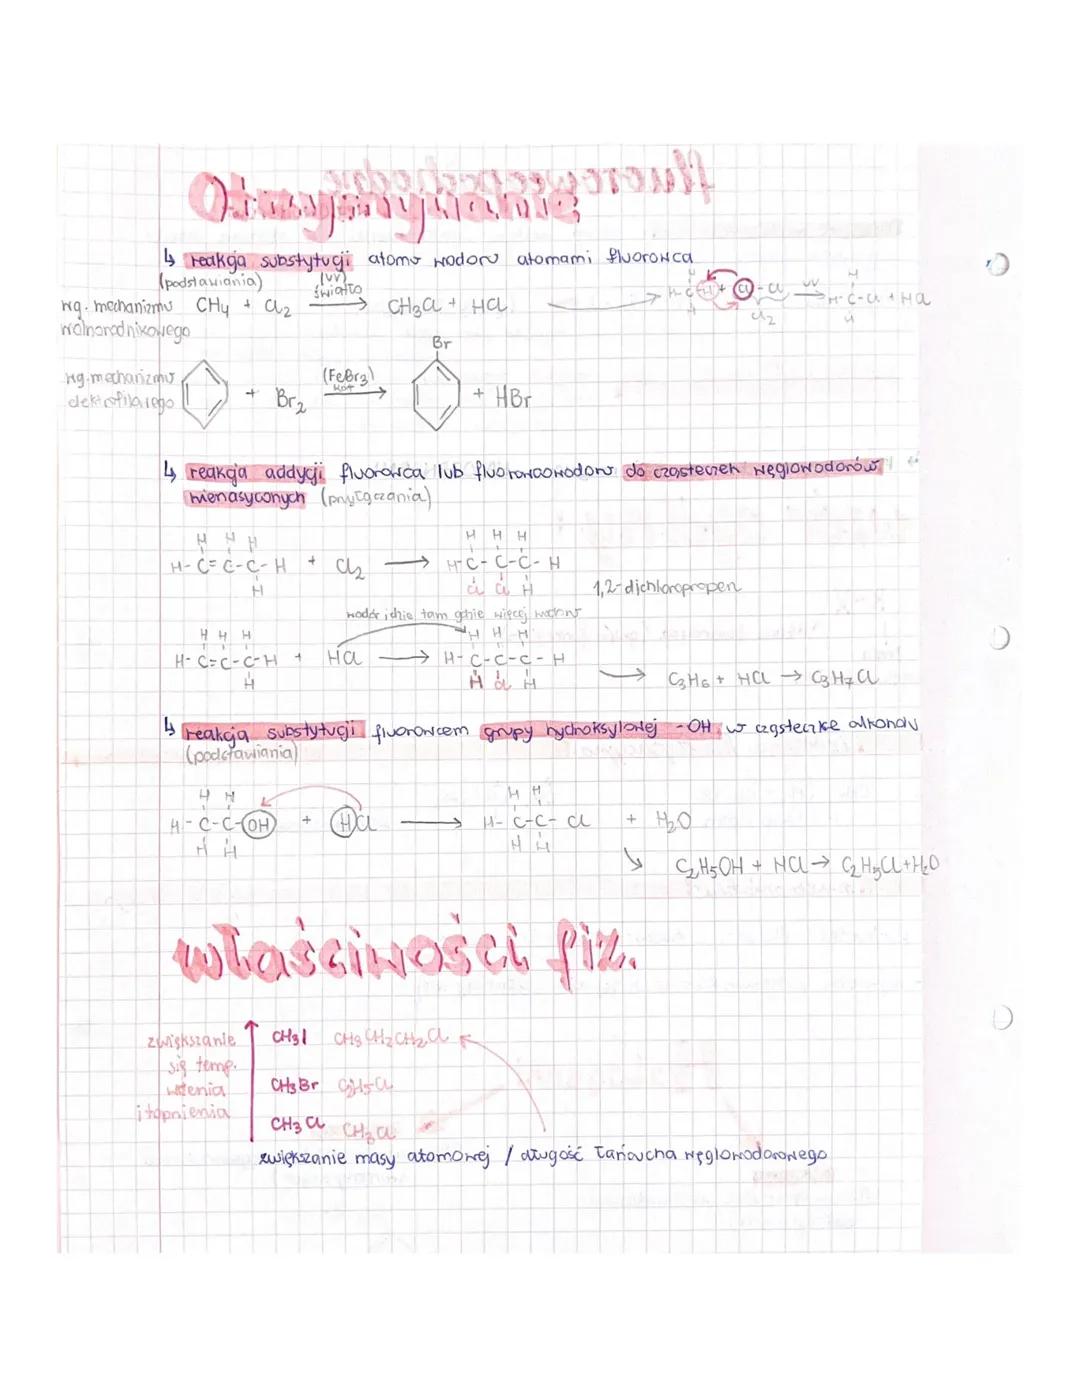 Otrzymywanie
↳ reakcja substytucji atomu wodoru atomami fluorowca
(podstawiania)
wg. mechanizmu
wolnorodnikowego
CH4 + Cl2 (UV) światło → CH3Cl + HCl
H-C-H + Cl-Cl UV → H-C-Cl + HCl
Cl2
Br
wg. mechanizmu
elektrofilowego
+ Br2 (FeBr3) kat → + HBr
↳ reakcja addycji fluorowca lub fluorowcowodoru do cząsteczek węglowodorów
nienasyconych (przyłączania)
H H H
H-C=C-C-H + Cl2 → H-C-C-C-H
H
Cl Cl H
1,2-dichloropropen
wodór idzie tam gdzie więcej wodoru
H H H
H-C=C-C-H + HCl → H-C-C-C-H
H
H Cl H
→ C3H6 + HCl → C3H7Cl
↳ reakcja substytucji fluorowcem grupy hydroksylowej -OH w cząsteczke alkoholu
(podstawiania)
H H
H-C-C-OH + HCl → H-C-C-Cl + H2O
H H
↘ C2H5OH + HCl → C2H5Cl + H2O
właściwości fiz.
zwiększanie
się temp.
wrzenia
i topnienia
CH3I CH3CH2CH2Cl
CH3Br C2H5Cl
CH3Cl CH3Cl
zwiększanie masy atomowej / długość łańcucha węglowodorowego